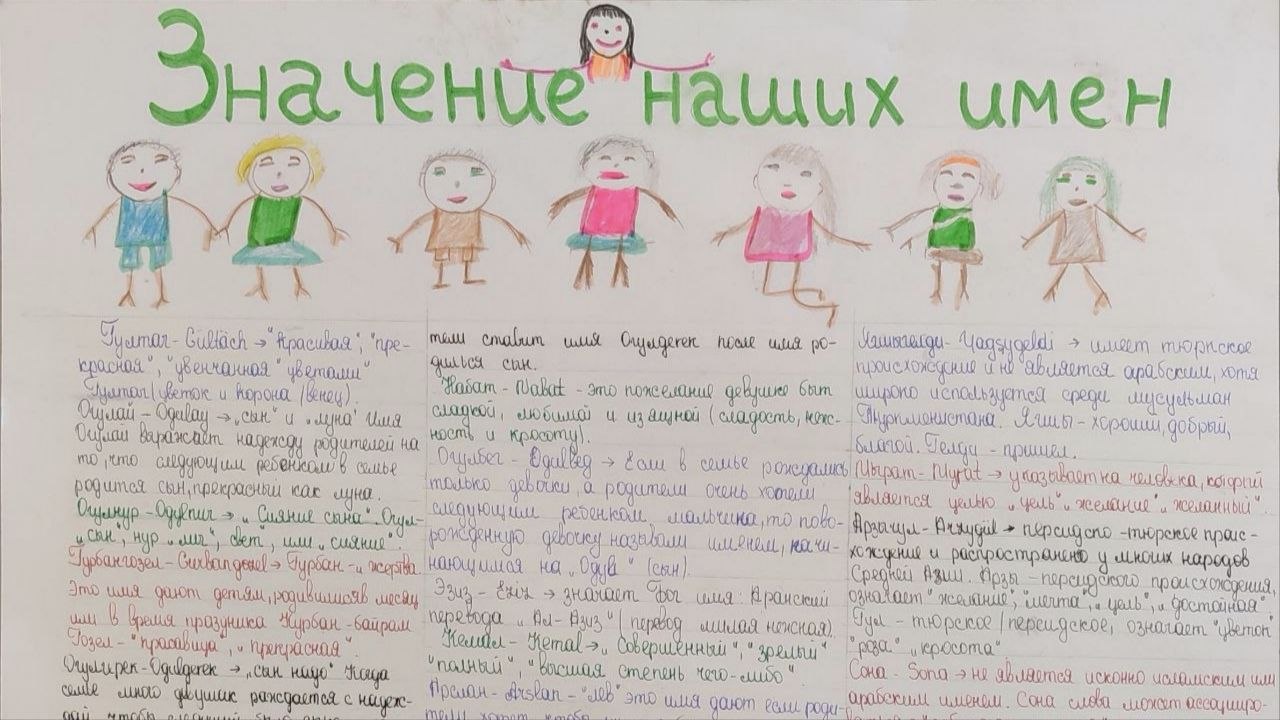 Значение наших имен
Гултач - Gültäch → "Красивая", "пре-
красная", "увенчанная "цветами"
Гултач (цветок и корона (венец).
Огулай - → "сын" и "луна" Имя
Огулай выражает надежду родителей на
то, что следующим ребёнком в семье
родится сын, прекрасный как луна.
Огулнур - → „Сияние сына". Огул-
„сын", нур „луч", свет", или „сияние".
Гурбангозел - → Гурбан - „жертва.
Это имя дают детям, родившийся в месяц
или в время праздника Курбан-байрам
Гозел - "красавица", "прекрасная".
→ „сын надо" Когда
семье много девушек рождается с надеж-
дой чтобы следующий был
тели ставит имя Огулгерек после имя ро-
дилься сын.
Набат - Nabat - это пожелание девушке быт
сладкой, любимой и изящной (сладость, неж-
ность и красоту).
Огулбег - → Если в семье рождались
только девочки, а родители очень хотели
следующим ребенком мальчика, то ново-
рожденную девочку называли именем, начи-
нающимся на (сын).
Эзиз - Eziz → значает Бог имя: Аранский
перевода „Ал-Азиз" (перевод милая нежная).
Кемал - Kemal → „Совершенный", "зрелый"
"полный", "высшая степень чего-либо".
Арслан - Arslan - "лев" это имя дают если роди-
тели хотят чтобы
Ягшыгелди - Yagşygeldi → имеет тюркское
происхождение и не является арабским, хотя
широко используется среди мусульман
Туркменистана. Ягшы - хороший, добрый,
благой. Гелди - пришел.
Мырат - Myrat → указывает на человека, который
является целью „цель" „желание" „желанный".
Арзыгул - Arzygül → персидско-тюркское проис-
хождение и распространено у многих народов
Средней Азии. Арзы - персидского происхождения,
означает "желание", "мечта", „цель", „достойная"
Гул - тюрское/персидское, означает "цветок"
"роза" „красота"
Сона - Sona → не является исконно исламским или
арабским именем. Сона слова может ассоцииро-